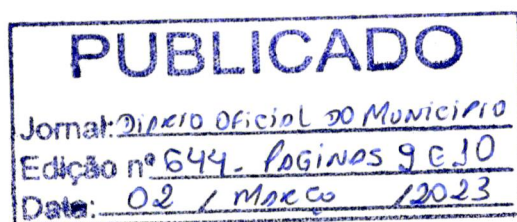 PUBLICADO
Jornal: DIÁRIO OFICIAL DO MUNICIPIO
Edição nº 644 - PAGINAS 9 E 10
Data: 02 / MARÇO / 2023